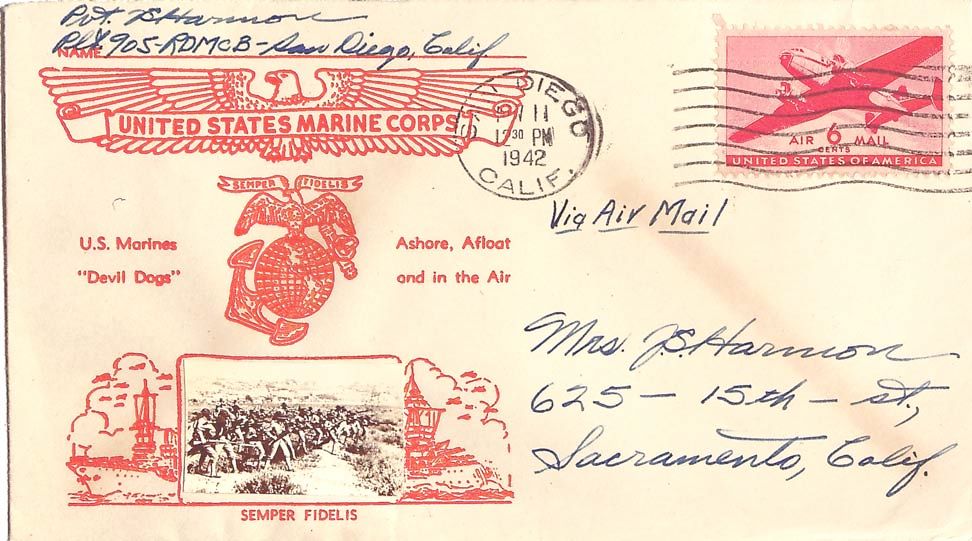 Pvt. JS Harmon
NAME Plt 905-RDMCB-San Diego, Calif
UNITED STATES MARINE CORPS
SEMPER FIDELIS
U.S. Marines
"Devil Dogs"
Ashore, Afloat
and in the Air
SEMPER FIDELIS
SAN DIEGO
11
12 30 PM
1942
CALIF.
AIR 6 MAIL
CENTS
UNITED STATES OF AMERICA
Via Air Mail
Mrs. JS Harmon
625 - 15th - st.,
Sacramento, Calif.